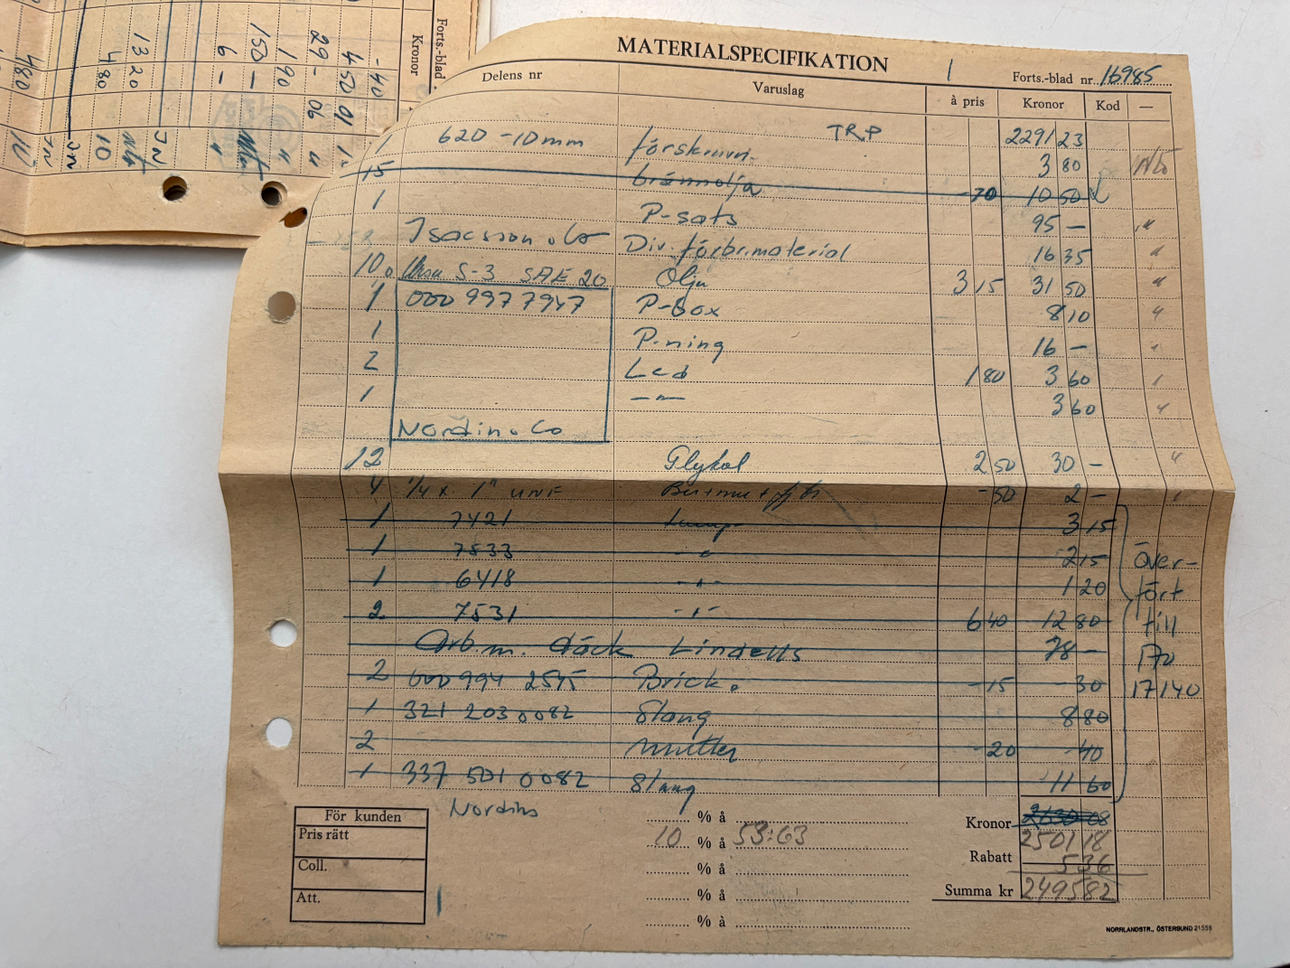 Forts.-blad
Kronor
-40
450 01
29- 06
190
150 -
6 -
13 20
4 80
10
JN
480
10
JN
MATERIALSPECIFIKATION 1 Forts.-blad nr 16985
Delens nr Varuslag à pris Kronor Kod —
TRP 2291 23
620 -10mm förskruvn. 3 80
15 brännolja -70 10 50
1 P-sats 95 -
Isacsson & Co Div. förbr.material 16 35
10 S-3 SAE 20 Olja 3 15 31 50
1 000 997 7947 P-box 8 10
1 P-ning 16 -
2 Led 1 80 3 60
1 —"— 3 60
Nordin & Co
12 Glykol 2 50 30 -
4 1/4 x 1" UNF -50 2 -
1 7421 Lamp 3 15
1 7533 -"- 2 15
1 6418 -"- 1 20
2 7531 -"- 6 40 12 80
Arb. m. däck Lindells 78 -
2 000 994 2545 Brick. -15 -30
1 321 203 0082 Slang 8 80
2 mutter -20 -40
1 337 501 0082 Slang 11 60
över-
fört
till
170
17140
Nordins
För kunden
Pris rätt
Coll.
Att.
% à
10 % à 53:63
% à
% à
% à
Kronor 2630 08
2501 18
Rabatt 5 36
Summa kr 2495 82
NORRLANDSTR., ÖSTERSUND 21558